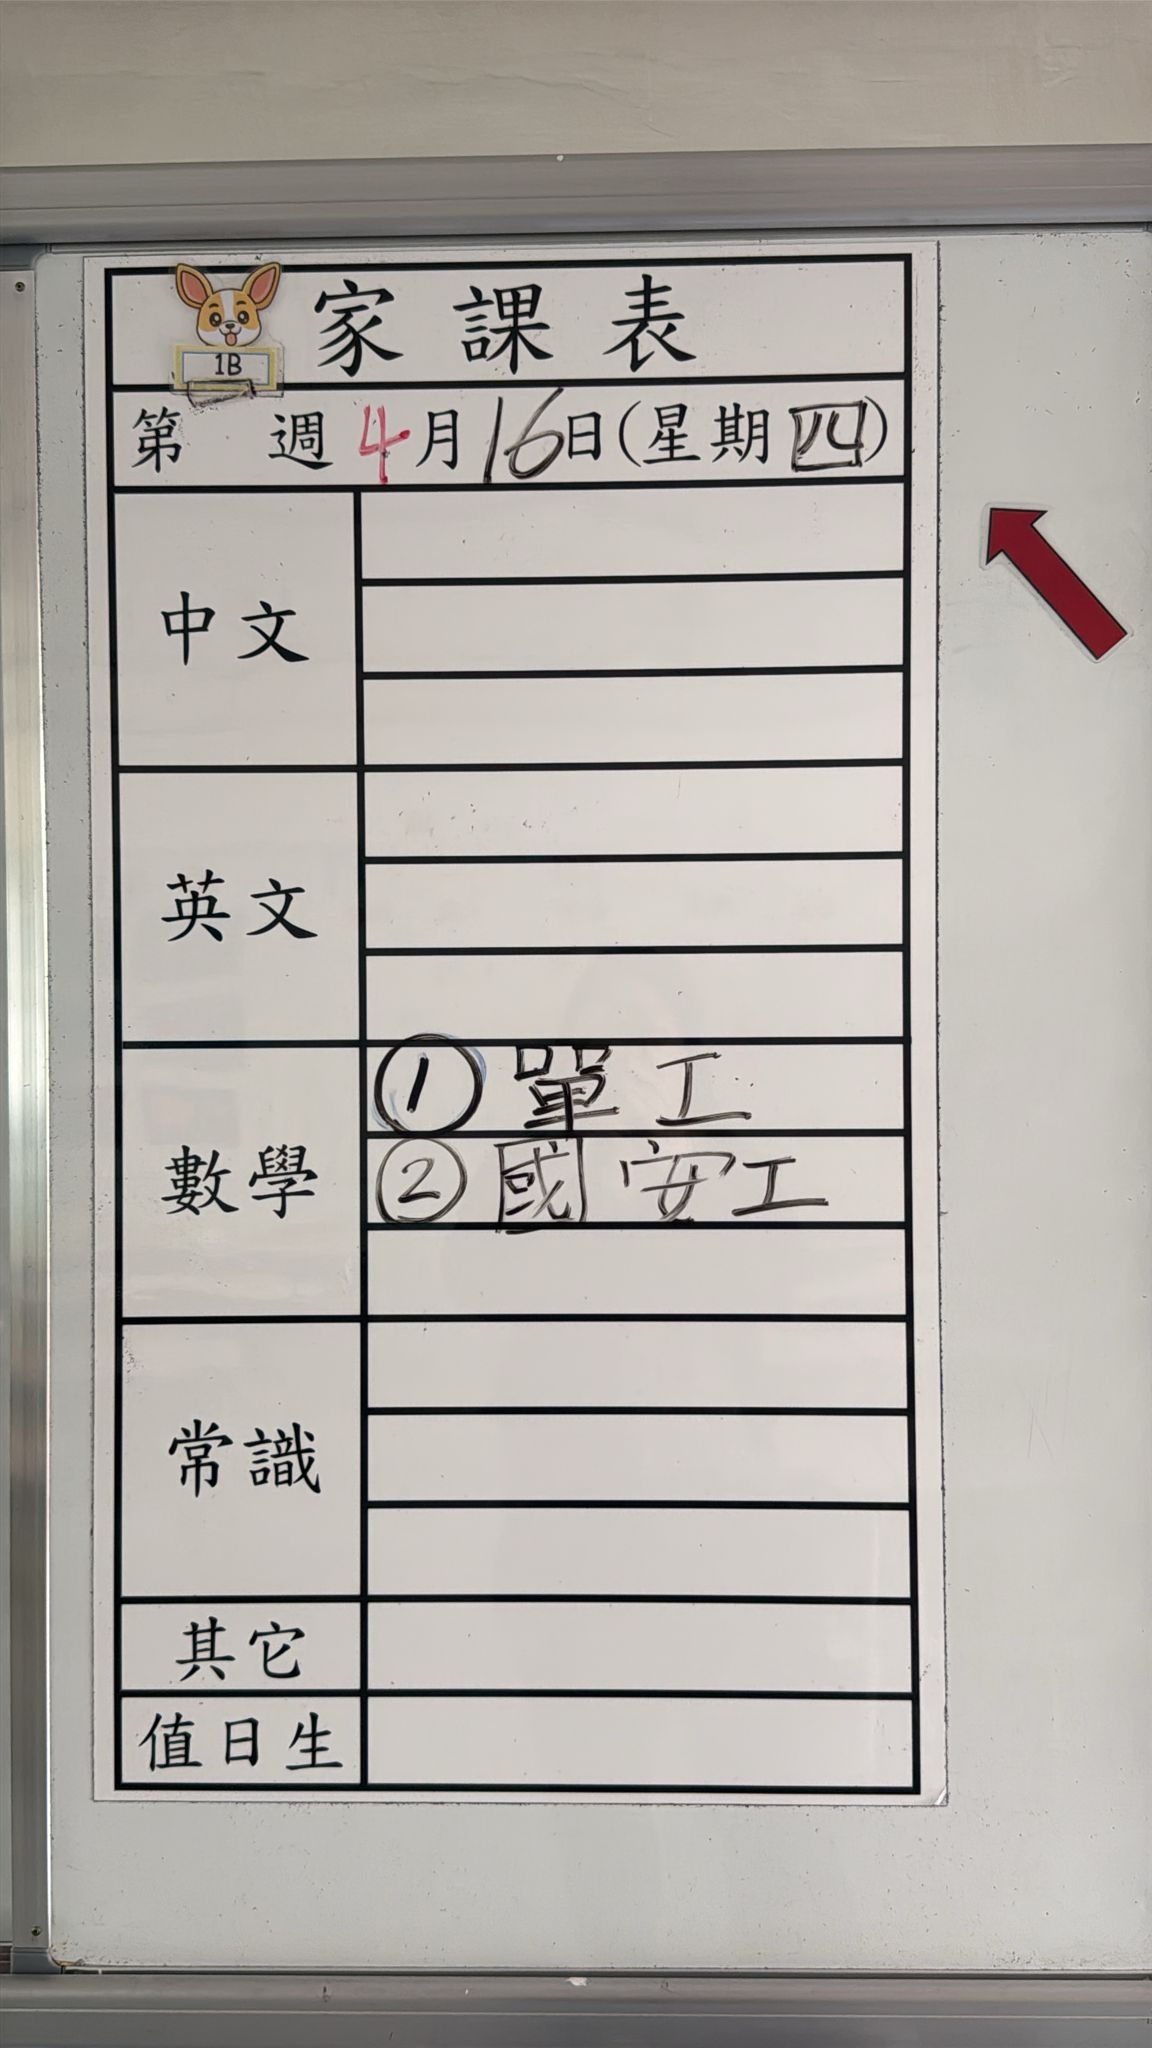 家課表
1B
第 週 4月16日(星期四)
中文
英文
數學
① 單工
② 國安工
常識
其它
值日生